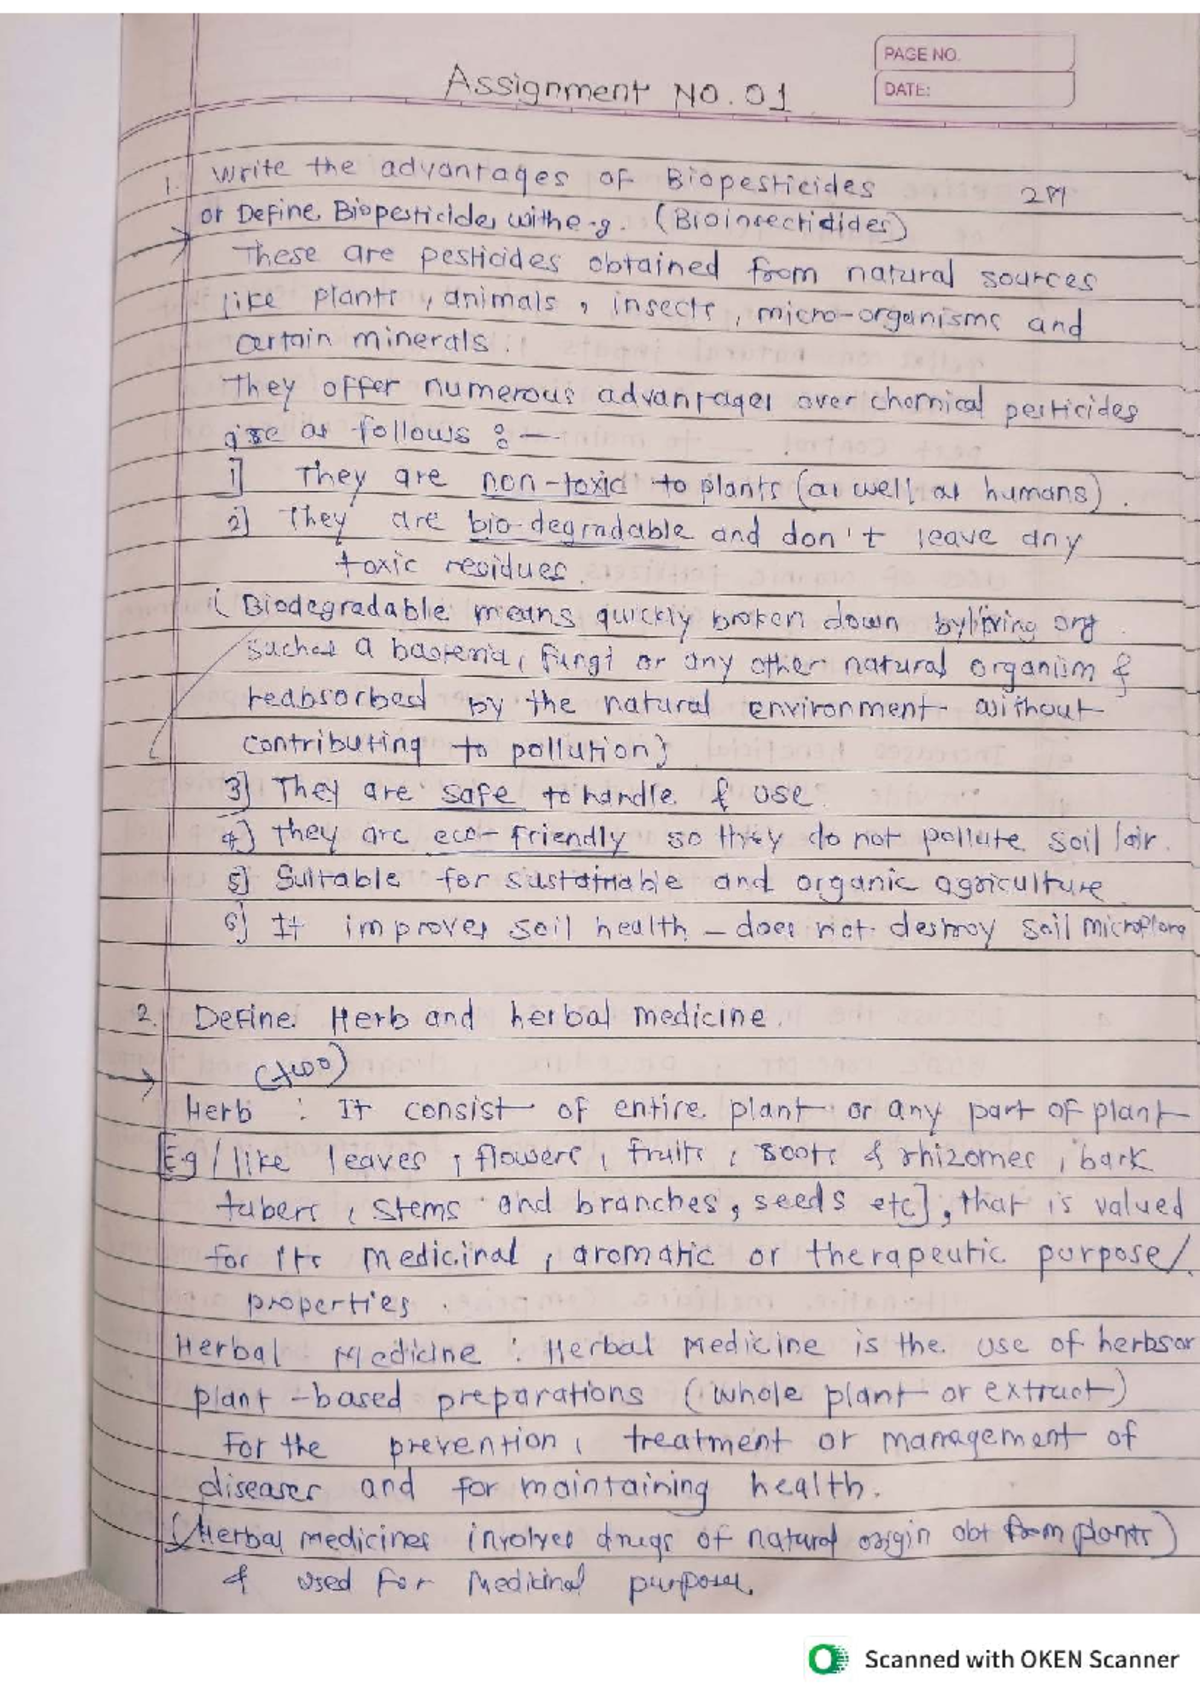 PAGE NO.
DATE:
Assignment NO. 01
1. Write the advantages of Biopesticides 2M
or Define Biopesticide, with e.g. (Bioinsectidides)
These are pesticides obtained from natural sources
like plants, animals, insects, micro-organisms and
certain minerals.
They offer numerous advantages over chemical pesticides
are as follows :—
1] They are non-toxic to plants (as well as humans).
2] They are bio-degradable and don't leave any
toxic residues.
(Biodegradable means quickly broken down by living org
such as a bacteria, fungi or any other natural organism &
reabsorbed by the natural environment without
contributing to pollution}
3] They are safe to handle & use.
4] they are eco-friendly so they do not pollute soil/air.
5] Suitable for sustainable and organic agriculture
6] It improves soil health – does not destroy soil microflora
2. Define Herb and herbal medicine.
(two)
Herb : It consist of entire plant or any part of plant
[Eg/like leaves, flowers, fruits, roots & rhizomes, bark
tubers, stems and branches, seeds etc], that is valued
for its medicinal, aromatic or therapeutic purpose/.
properties.
Herbal Medicine : Herbal Medicine is the use of herbs or
plant-based preparations (whole plant or extract)
For the prevention, treatment or management of
diseases and for maintaining health.
(Herbal medicines involves drugs of natural origin obt from plants)
& used for Medicinal purposes.
Scanned with OKEN Scanner